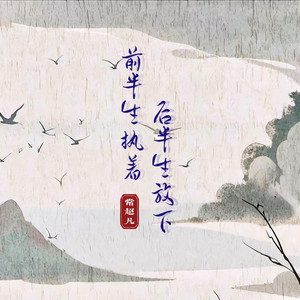 前半生执着
后半生放下
常赵凡